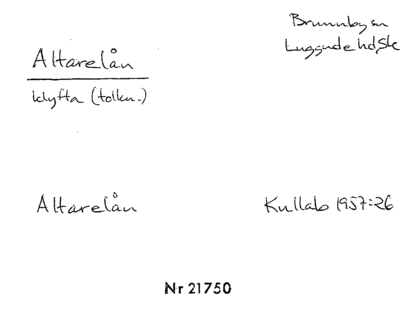 Altarelån
klyfta (tolkn.)
Brunnby sn
Luggude hd, Sk
Altarelån
Kullab 1957:26
Nr 21750